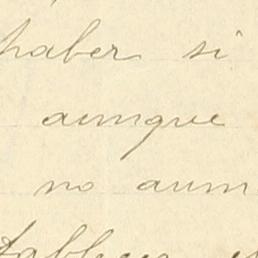 haber si
aunque
no aum